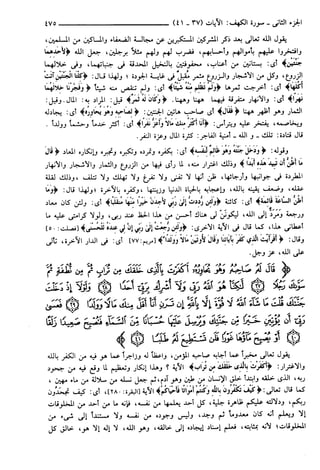 الجزء الثاني - سورة الكهف: الآيات (٣٧ - ٤١) ٤٧٥
يقول الله تعالى بعد ذكر المشركين المستكبرين عن مجالسة الضعفاء والمساكين من المسلمين،
وافتخروا عليهم بأموالهم وأحسابهم، فضرب لهم ولهم مثلاً برجلين، جعل الله ﴿لأحدهما
جنتين﴾ أي: بستانين من أعناب، محفوفتين بالنخيل المحدقة في جنباتهما، وفي خلالهما
الزروع، وكل من الأشجار والزروع مثمر مقبل في غاية الجودة؛ ولهذا قال: ﴿كلتا الجنتين آتت
أكلها﴾ أي: أخرجت ثمرها ﴿ولم تظلم منه شيئاً﴾ أي: ولم تنقص منه شيئاً ﴿وفجرنا خلالهما
نهراً﴾ أي: والأنهار متفرقة فيهما ههنا وههنا. ﴿وكان له ثمر﴾ قيل: المراد به: المال. وقيل:
الثمار وهو أظهر ههنا ﴿فقال﴾ أي صاحب هاتين الجنتين: ﴿لصاحبه وهو يحاوره﴾ أي: يجادله
ويخاصمه، يفتخر عليه ويترأس: ﴿أنا أكثر منك مالاً وأعز نفراً﴾ أي: أكثر خدماً وحشماً وولداً.
قال قتادة: تلك - والله - أمنية الفاجر: كثرة المال وعزة النفر.
وقوله: ﴿ودخل جنته وهو ظالم لنفسه﴾ أي: بكفره وتمرده وتكبره وتجبره وإنكاره المعاد ﴿قال
ما أظن أن تبيد هذه أبداً﴾ وذلك اغترار منه، لما رأى فيها من الزروع والثمار والأشجار والأنهار
المطردة في جوانبها وأرجائها، ظن أنها لا تفنى ولا تفرغ ولا تهلك ولا تتلف، وذلك لقلة
عقله، وضعف يقينه بالله، وإعجابه بالحياة الدنيا وزينتها، وكفره بالآخرة، ولهذا قال: ﴿وما
أظن الساعة قائمة﴾ أي: كائنة ﴿ولئن رددت إلى ربي لأجدن خيراً منها منقلباً﴾ أي: ولئن كان معاد
ورجعة ومرد إلى الله، ليكونن لي هناك أحسن من هذا الحظ عند ربي، ولولا كرامتي عليه ما
أعطاني هذا، كما قال في الآية الأخرى: ﴿ولئن رجعت إلى ربي إن لي عنده للحسنى﴾ [فصلت: ٥٠]
وقال: ﴿أفرأيت الذي كفر بآياتنا وقال لأوتين مالاً وولداً﴾ [مريم: ٧٧] أي: في الدار الآخرة، تألى
على الله، عز وجل.
قال له صاحبه وهو يحاوره أكفرت بالذي خلقك من تراب ثم من نطفة ثم
سواك رجلاً لكنا هو الله ربي ولا أشرك بربي أحداً ولولا إذ دخلت
جنتك قلت ما شاء الله لا قوة إلا بالله إن ترن أنا أقل منك مالاً وولداً فعسى
ربي أن يؤتين خيراً من جنتك ويرسل عليها حسباناً من السماء فتصبح صعيداً زلقاً
أو يصبح ماؤها غوراً فلن تستطيع له طلباً
يقول تعالى مخبراً عما أجابه صاحبه المؤمن، واعظاً له وزاجراً عما هو فيه من الكفر بالله
والاغترار: ﴿أكفرت بالذي خلقك من تراب﴾ الآية؟ وهذا إنكار وتعظيم لما وقع فيه من جحود
ربه، الذي خلقه وابتدأ خلق الإنسان من طين وهو آدم، ثم جعل نسله من سلالة من ماء مهين،
كما قال تعالى: ﴿كيف تكفرون بالله وكنتم أمواتاً فأحياكم﴾ الآية [البقرة: ٢٨]، أي: كيف تجحدون
ربكم، ودلالته عليكم ظاهرة جلية، كل أحد يعلمها من نفسه، فإنه ما من أحد من المخلوقات
إلا ويعلم أنه كان معدوماً ثم وجد، وليس وجوده من نفسه ولا مستنداً إلى شيء من
المخلوقات؛ لأنه بمثابته، فعلم إسناد إيجاده إلى خالقه، وهو الله، لا إله إلا هو، خالق كل